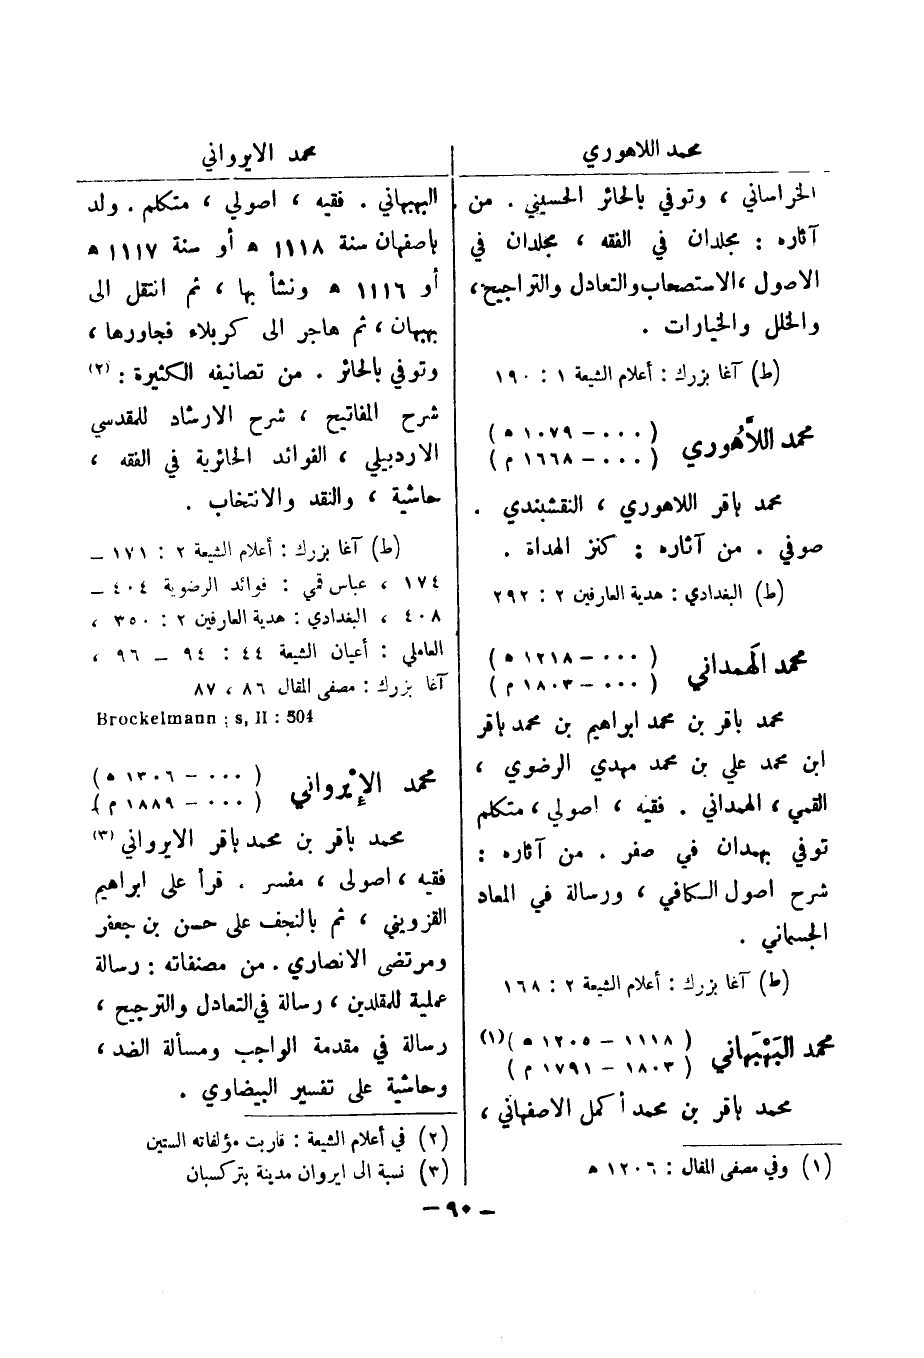 محمد اللاهوري
الخراساني ، وتوفي بالحائر الحسيني . من
آثاره : مجلدان في الفقه ، مجلدان في
الاصول ،الاستصحاب والتعادل والتراجيح،
والخلل والخيارات .
(ط) آغا بزرك : أعلام الشيعة ١ : ١٩٠
محمد اللَّاهُوري ( ٠٠٠ – ١٠٧٩ ه )
( ٠٠٠ – ١٦٦٨ م )
محمد باقر اللاهوري ، النقشبندي .
صوفي . من آثاره : كنز الهداة .
(ط) البغدادي : هدية العارفين ٢ : ٢٩٢
محمد الهَمداني ( ٠٠٠ – ١٢١٨ ه )
( ٠٠٠ – ١٨٠٣ م )
محمد باقر بن محمد ابراهيم بن محمد باقر
ابن محمد علي بن محمد مهدي الرضوي ،
القمي ، الهمداني . فقيه ، اصولي ، متكلم
توفي بهمدان في صفر . من آثاره :
شرح اصول الكافي ، ورسالة في المعاد
الجسماني .
(ط) آغا بزرك : أعلام الشيعة ٢ : ١٦٨
محمد البَهْبَهاني ( ١١١٨ – ١٢٠٥ ه )(١)
( ١٨٠٣ – ١٧٩١ م )
محمد باقر بن محمد أكمل الاصفهاني ،
(١) وفي مصفى المقال : ١٢٠٦ ه
محمد الايرواني
البهبهاني . فقيه ، اصولي ، متكلم . ولد
باصفهان سنة ١١١٨ ه أو سنة ١١١٧ ه
أو ١١١٦ ه ونشأ بها ، ثم انتقل الى
بهبهان ، ثم هاجر الى كربلاء فجاورها ،
وتوفي بالحائر . من تصانيفه الكثيرة : (٢)
شرح المفاتيح ، شرح الارشاد للمقدسي
الاردبيلي ، الفوائد الحائرية في الفقه ،
حاشية ، والنقد والانتخاب .
(ط) آغا بزرك : أعلام الشيعة ٢ : ١٧١ –
١٧٤ ، عباس قمي : فوائد الرضوية ٤٠٤ –
٤٠٨ ، البغدادي : هدية العارفين ٢ : ٣٥٠ ،
العاملي : أعيان الشيعة ٤٤ : ٩٤ – ٩٦ ،
آغا بزرك : مصفى المقال ٨٦ ، ٨٧
Brockelmann : s, II : 504
محمد الإيْرواني ( ٠٠٠ – ١٣٠٦ ه )
( ٠٠٠ – ١٨٨٩ م )
محمد باقر بن محمد باقر الايرواني (٣)
فقيه ، اصولى ، مفسر . قرأ على ابراهيم
القزويني ، ثم بالنجف على حسن بن جعفر
ومرتضى الانصاري . من مصنفاته : رسالة
عملية للمقلدين ، رسالة في التعادل والترجيح ،
رسالة في مقدمة الواجب ومسألة الضد ،
وحاشية على تفسير البيضاوي .
(٢) في أعلام الشيعة : قاربت مؤلفاته الستين
(٣) نسبة الى ايروان مدينة بتركسبان
– ٩٠ –